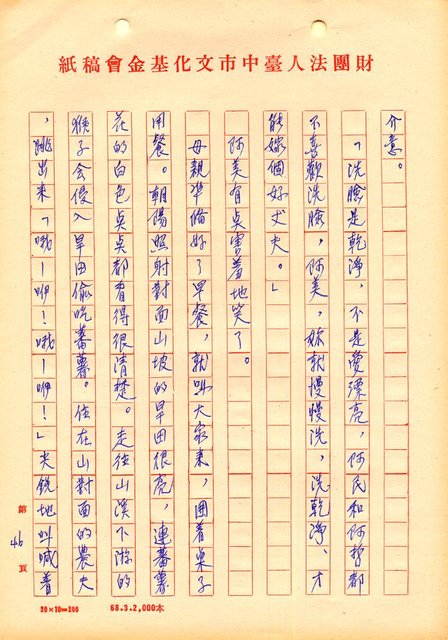 財團法人臺中市文化基金會稿紙
介意。
「洗臉是乾淨，不是愛漂亮，阿民和阿哲都
不喜歡洗臉，阿美，妳就慢慢洗，洗乾淨、才
能嫁個好丈夫。」
阿美有点害羞地笑了。
母親準備好了早餐，就叫大家來，圍着桌子
用餐。朝陽照射對面山坡的旱田很亮，連蕃薯
花的白色点点都看得很清楚。走往山溪下游的
猴子会侵入旱田偷吃蕃薯。住在山對面的農夫
，跳出來「哦ー咿！哦ー咿！」尖銳地叫喊着
第 46 頁
20×10=200
68.3.2,000本